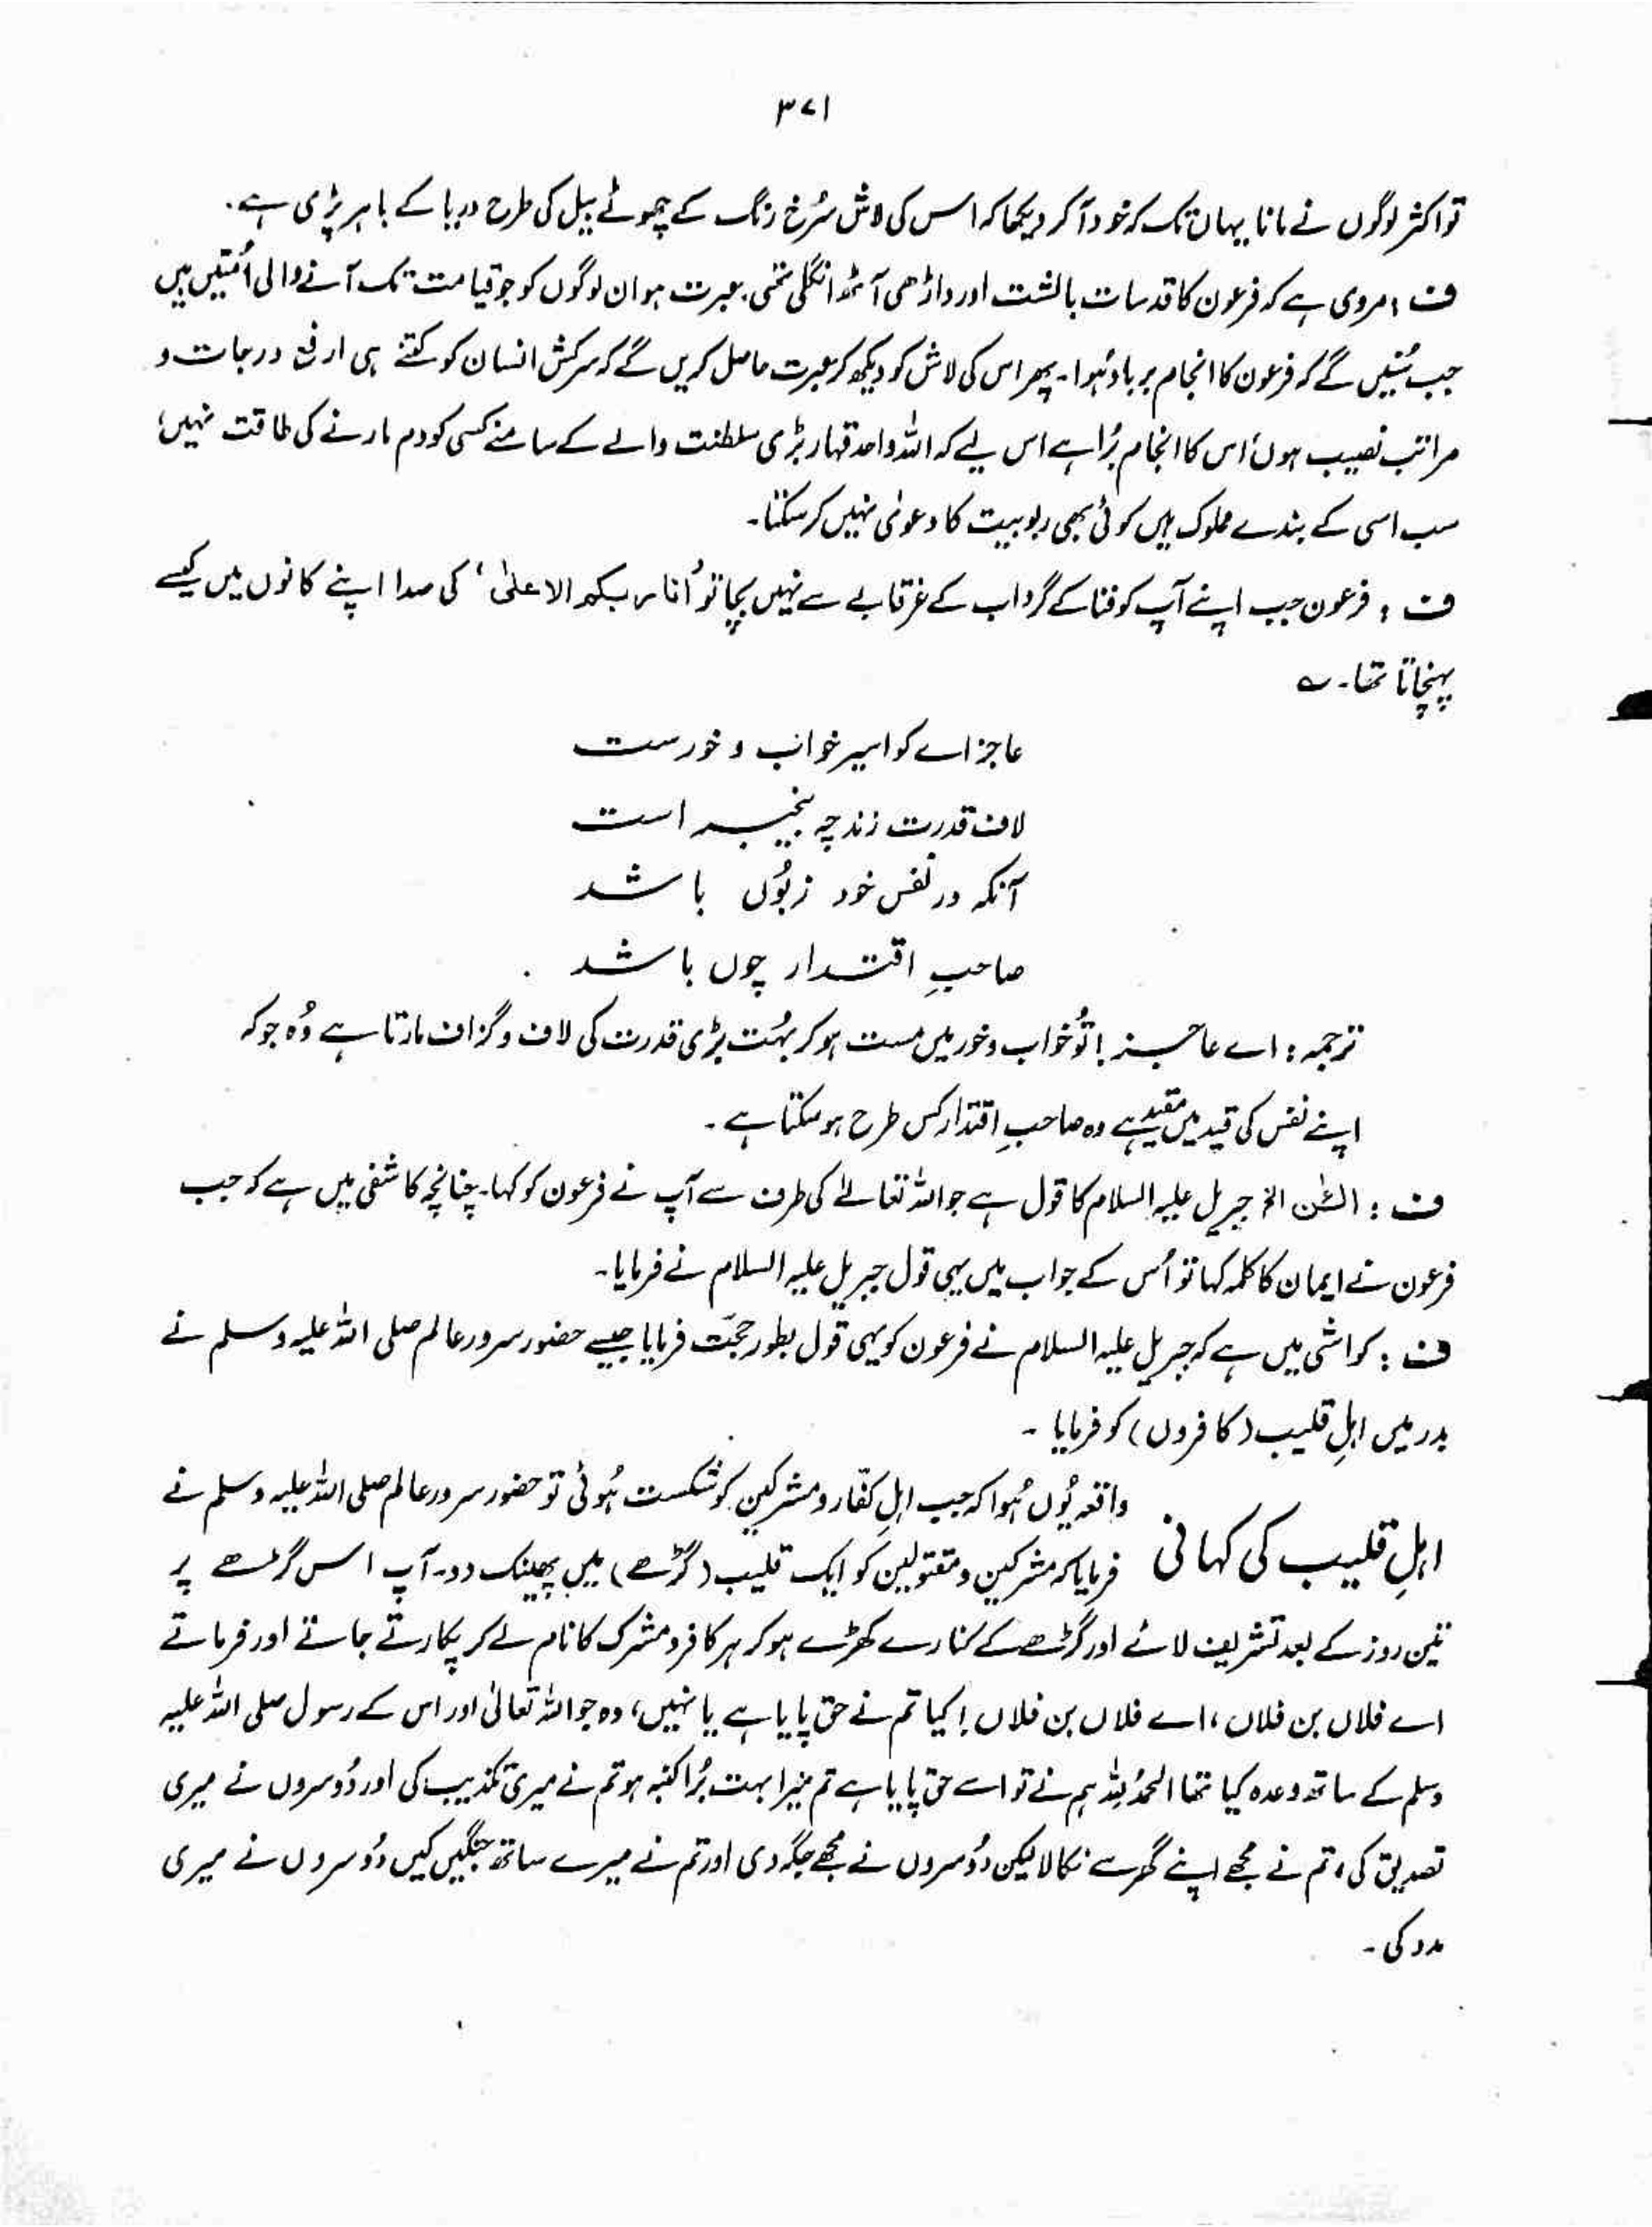 ۳۷۱
تو اکثر لوگوں نے مانا یہاں تک کہ خود آکر دیکھا کہ اس کی لاش سُرخ رنگ کے چھوٹے بیل کی طرح دریا کے باہر پڑی ہے۔
ف : مروی ہے کہ فرعون کا قد سات بالشت اور داڑھی آٹھ انگلی تھی۔ عبرت ہو ان لوگوں کو جو قیامت تک آنے والی اُمتیں ہیں
جب سُنیں گے کہ فرعون کا انجام برباد ہُوا۔ پھر اس کی لاش کو دیکھ کر عبرت حاصل کریں گے کہ سرکش انسان کو کتنے ہی ارفع درجات و
مراتب نصیب ہوں اس کا انجام بُرا ہے اس لیے کہ اللہ واحد قہار بڑی سلطنت والے کے سامنے کسی کو دم مارنے کی طاقت نہیں،
سب اسی کے بندے مملوک ہیں کوئی بھی ربوبیت کا دعوٰی نہیں کر سکتا۔
ف : فرعون جب اپنے آپ کو فنا کے گرداب کے غرقابے سے نہیں بچا تو 'انا ربکم الاعلیٰ' کی صدا اپنے کانوں میں کیسے
پہنچاتا تھا۔ ؎
عاجز اے کو اسیر خواب و خورست
لاف قدرت زند چہ بیخبر است
آنکہ در نفس خود زبُوں باشد
صاحبِ اقتدار چوں باشد
ترجمہ : اے عاجز ! تُو خواب و خور میں مست ہو کر بہُت بڑی قدرت کی لاف و گزاف مارتا ہے وُہ جو کہ
اپنے نفس کی قید میں مقید ہے وہ صاحبِ اقتدار کس طرح ہو سکتا ہے۔
ف : الئٰن الخ جبریل علیہ السلام کا قول ہے جو اللہ تعالےٰ کی طرف سے آپ نے فرعون کو کہا۔ چنانچہ کاشفی میں ہے کہ جب
فرعون نے ایمان کا کلمہ کہا تو اُس کے جواب میں یہی قول جبریل علیہ السلام نے فرمایا۔
ف : کواشی میں ہے کہ جبریل علیہ السلام نے فرعون کو یہی قول بطور حجّت فرمایا جیسے حضور سرور عالم صلی اللہ علیہ وسلم نے
بدر میں اہلِ قلیب (کافروں) کو فرمایا۔
واقعہ یُوں ہُوا کہ جب اہلِ کفّار و مشرکین کو شکست ہُوئی تو حضور سرور عالم صلی اللہ علیہ وسلم نے
اہلِ قلیب کی کہانی فرمایا کہ مشرکین و مقتولین کو ایک قلیب (گڑھے) میں پھینک دو۔ آپ اس گڑھے پر
تین روز کے بعد تشریف لائے اور گڑھے کے کنارے کھڑے ہو کر ہر کافر و مشرک کا نام لے کر پکارتے جاتے اور فرماتے
اے فلاں بن فلاں، اے فلاں بن فلاں ! کیا تم نے حق پایا ہے یا نہیں، وہ جو اللہ تعالیٰ اور اس کے رسول صلی اللہ علیہ
وسلم کے ساتھ وعدہ کیا تھا الحمدُ للہ ہم نے تو اسے حق پایا ہے تم میرا بہت بُرا کنبہ ہو تم نے میری تکذیب کی اور دُوسروں نے میری
تصدیق کی، تم نے مجھے اپنے گھر سے نکالا لیکن دُوسروں نے مجھے جگہ دی اور تم نے میرے ساتھ جنگیں کیں دُوسروں نے میری
مدد کی۔